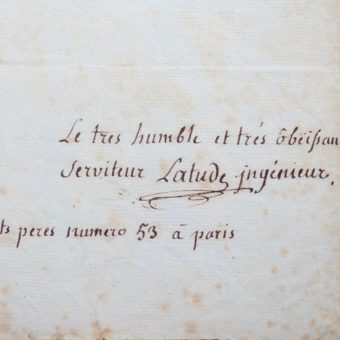 Le tres humble et trés ôbëissan
Serviteur Latude ingénieur.
ts peres numero 53 â paris